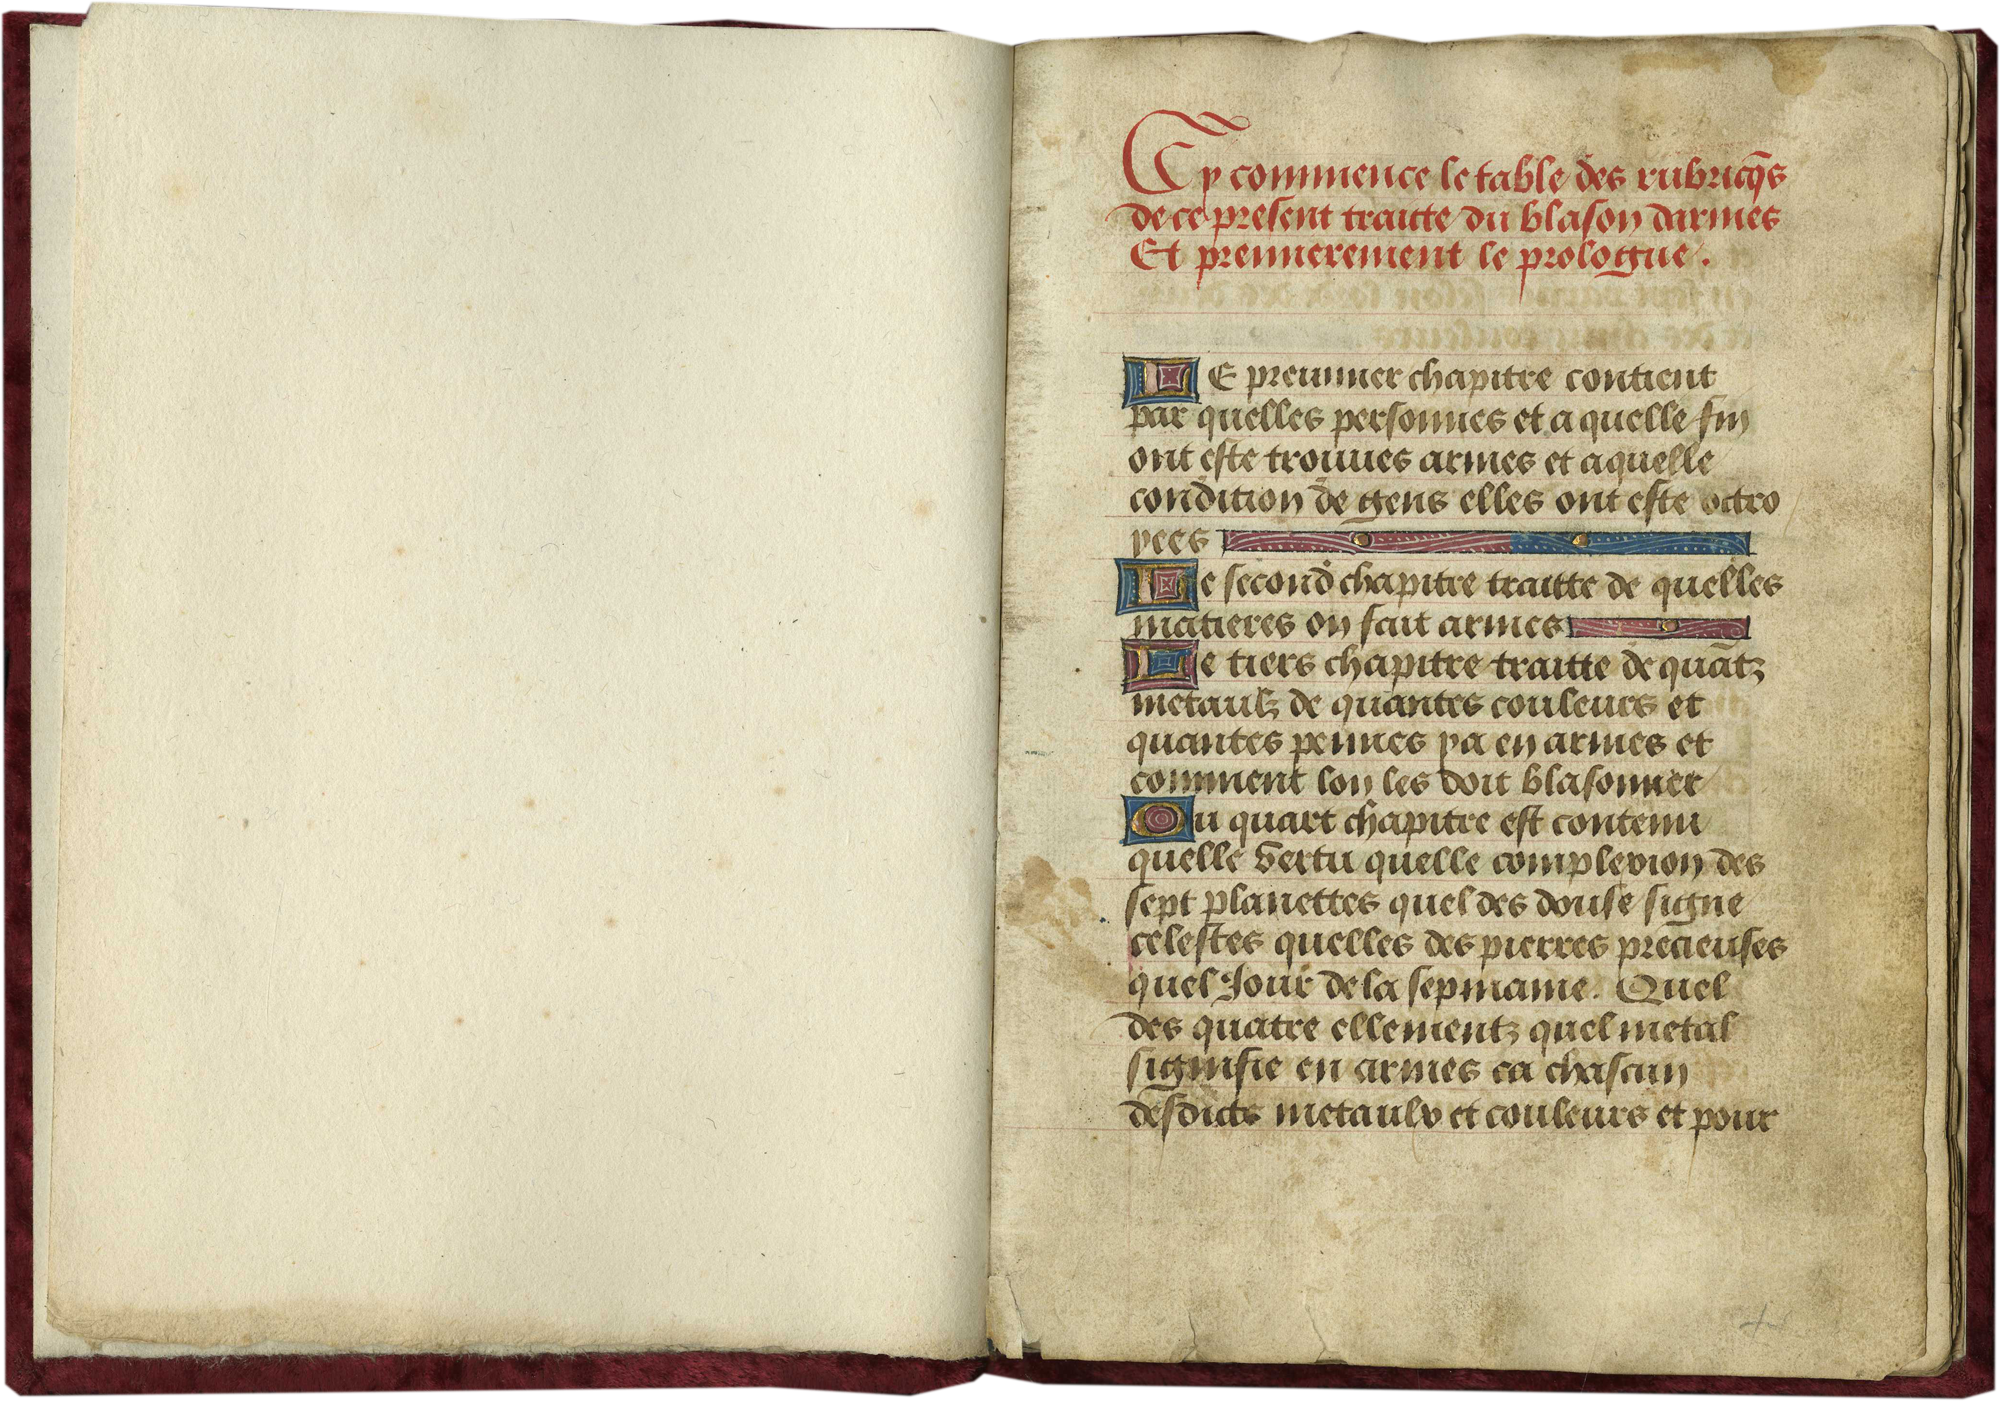 Cy commence le table des rubricq̄s
de ce present traitte du blason darmes
Et premierement le prologue .
LE premmier chapitre contient
par quelles personnes et a quelle fin
ont este trouuees armes et a quelle
condition de gens elles ont este octro
yees
Le second chapitre traitte de quelles
matieres on fait armes
Le tiers chapitre traitte de quātz
metaulz de quantes couleurs et
quantes pennes y a en armes et
comment lon les doit blasonner
Ou quart chapitre est contenu
quelle vertu quelle complexion des
sept planettes quel des douse signe
celestes quelles des pierres precieuses
quel Jour de la sepmaine . Quel
des quatre ellementz quel metal
signifie en armes ca chascun
desdicts metaulx et couleurs et pour